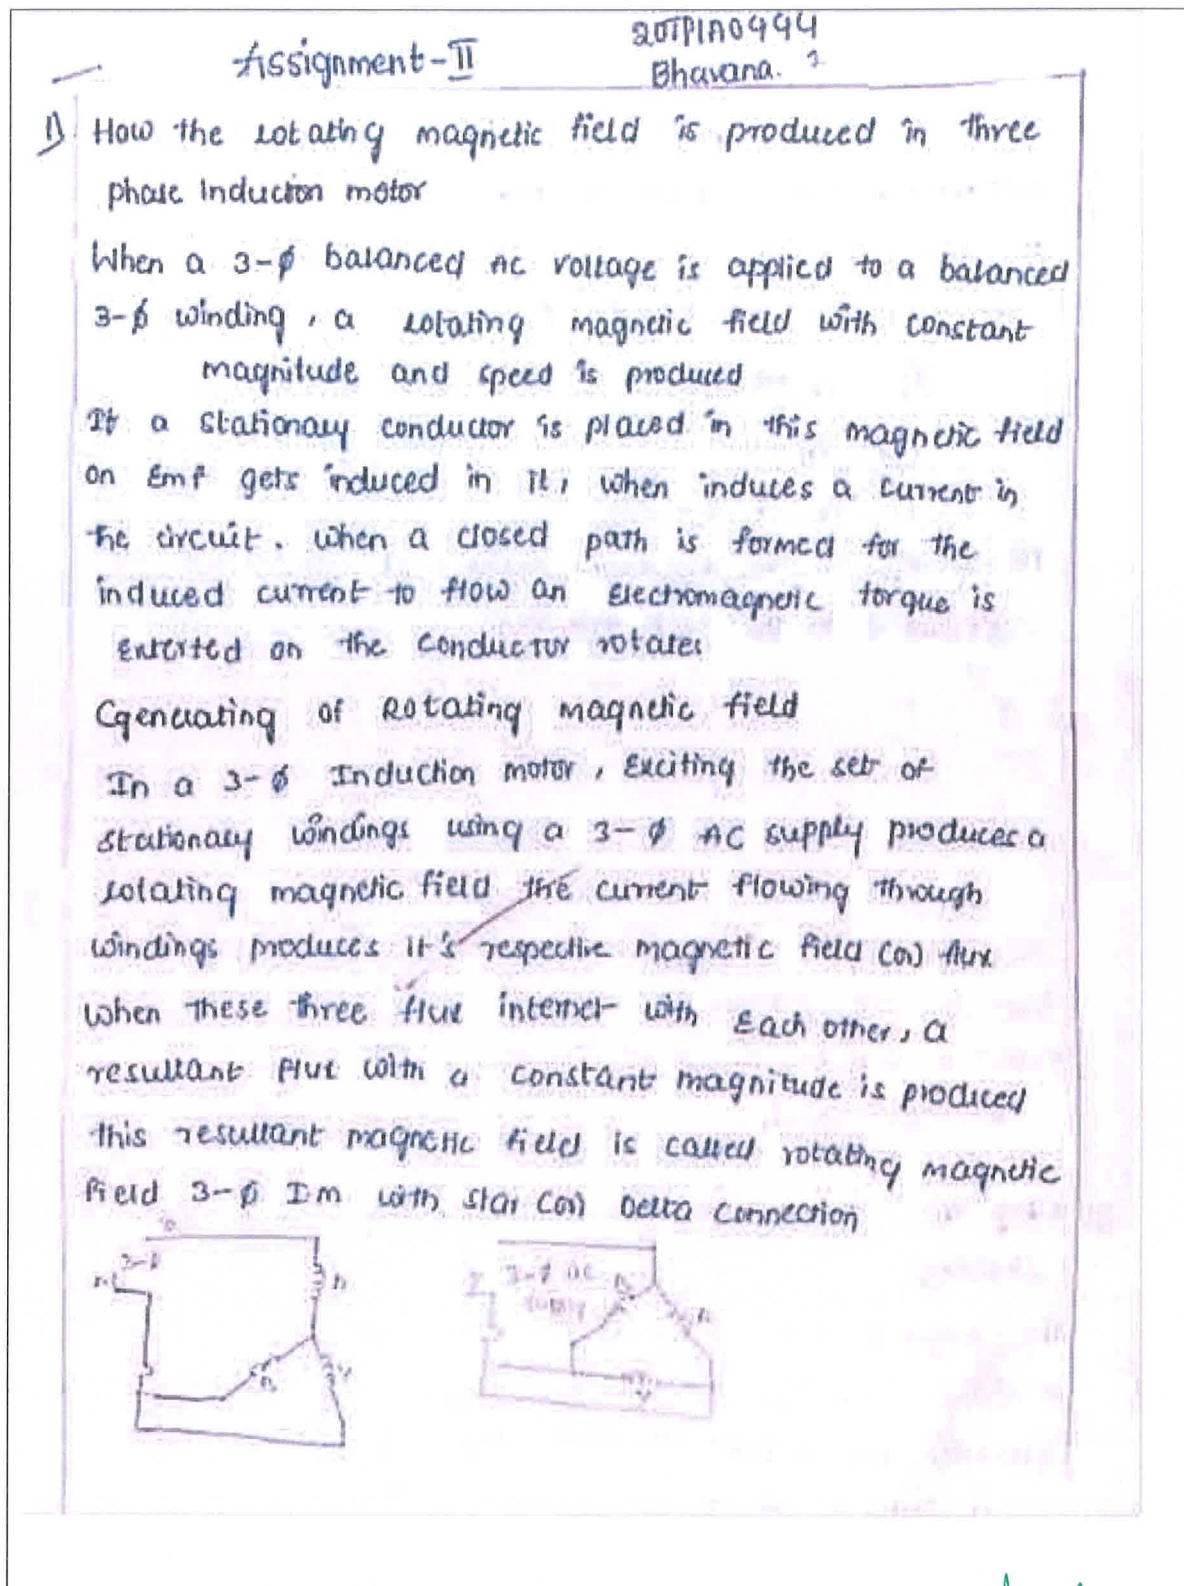 Assignment-II
20TP1A0444
Bhavana.
1) How the rotating magnetic field is produced in three
phase induction motor
When a 3-ϕ balanced AC voltage is applied to a balanced
3-ϕ winding, a rotating magnetic field with constant
magnitude and speed is produced
If a stationary conductor is placed in this magnetic field
on Emf gets induced in it, when induces a current in
the circuit. when a closed path is formed for the
induced current to flow an Electromagnetic torque is
Exterted on the conductor rotates
Generating of Rotating magnetic field
In a 3-ϕ Induction motor, Exciting the set of
stationary windings using a 3-ϕ AC supply produces a
rotating magnetic field the current flowing through
windings produces it's respective magnetic field (or) flux
When these three flux with Each other, a
resultant flux with a constant magnitude is produced
this resultant magnetic field is called rotating magnetic
field 3-ϕ Im with star (or) Delta connection
3-ϕ
3-ϕ AC